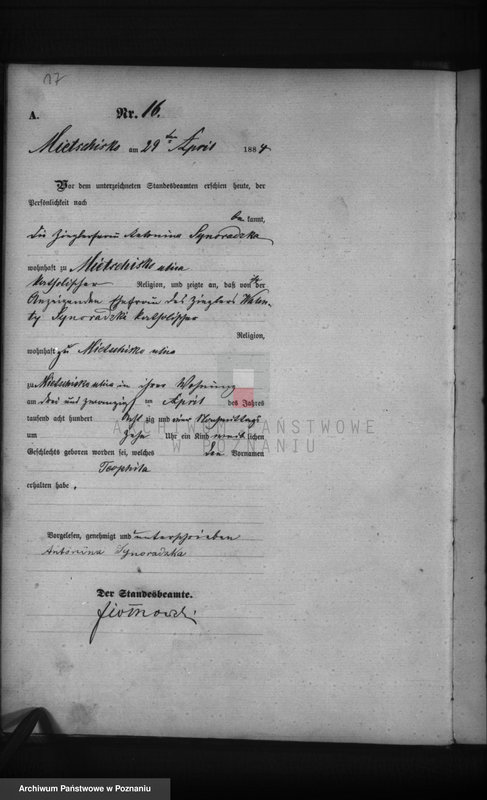 17
A. Nr. 16.
Mietschisko am 29ten April 1884
Vor dem unterzeichneten Standesbeamten erschien heute, der
Persönlichkeit nach
be kannt,
die Zieglerfrau Antonina Synoradzka
wohnhaft zu Mietschisko
katholischer Religion, und zeigte an, daß von der
Anzeigenden Ehefrau des Zieglers Walen-
ty Synoradzki katholischer
Religion,
wohnhaft zu Mietschisko
zu Mietschisko in ihrer Wohnung
am drei und zwanzigsten April des Jahres
tausend acht hundert acht zig und vier Nachmittags
um zehn Uhr ein Kind weib lichen
Geschlechts geboren worden sei, welches den Vornamen
Teophila
erhalten habe.
Vorgelesen, genehmigt und unterschrieben
Antonina Synoradzka
Der Standesbeamte.
ARCHIWUM PAŃSTWOWE
W POZNANIU
Archiwum Państwowe w Poznaniu